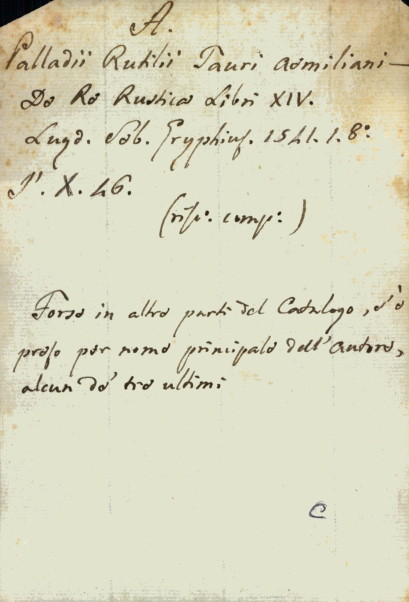 A.
Palladii Rutilii Tauri Aemiliani —
De Re Rustica Libri XIV.
Lugd. Seb. Gryphius. 1541. 1. 8°.
X. 46.
(risp.e comp.e)
Forse in altre parti del Catalogo, s'è
preso per nome principale dell'Autore,
alcun de' tre ultimi
C